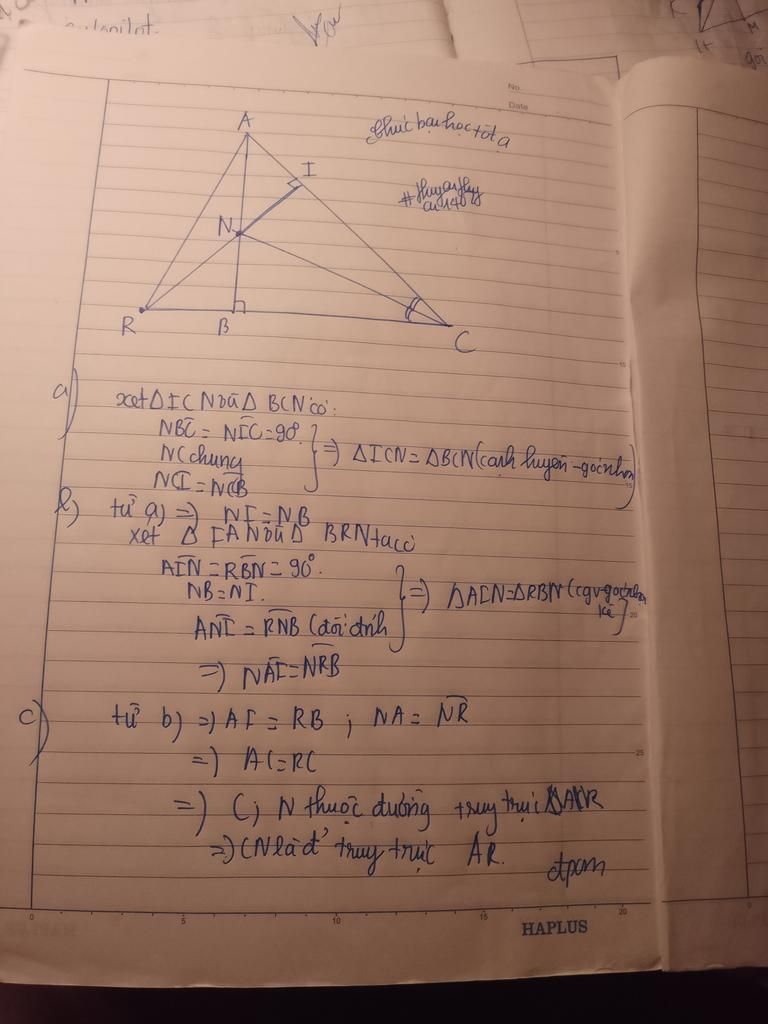 No.
Date
A
I
N
R
B
C
chúc bạn học tốt ạ
a)
xét ΔICN và ΔBCN có:
NBC = NIC = 90°.
NC chung
NCI = NCB
=) ΔICN = ΔBCN (cạnh huyền - góc nhọn)
b)
từ a) =) NI = NB
xét ΔIAN và Δ BRN ta có
AIN = RBN = 90°.
NB = NI.
ANI = RNB (đối đỉnh
=) ΔAIN = ΔRBN (cgv-góc nhọn
kề)
=) NAI = NRB
c)
từ b) =) AI = RB ; NA = NR
=) AC = RC
=) C; N thuộc đường truy trực
=) CN là đ' truy trực AR.
đpcm
0 5 10 15 20
HAPLUS